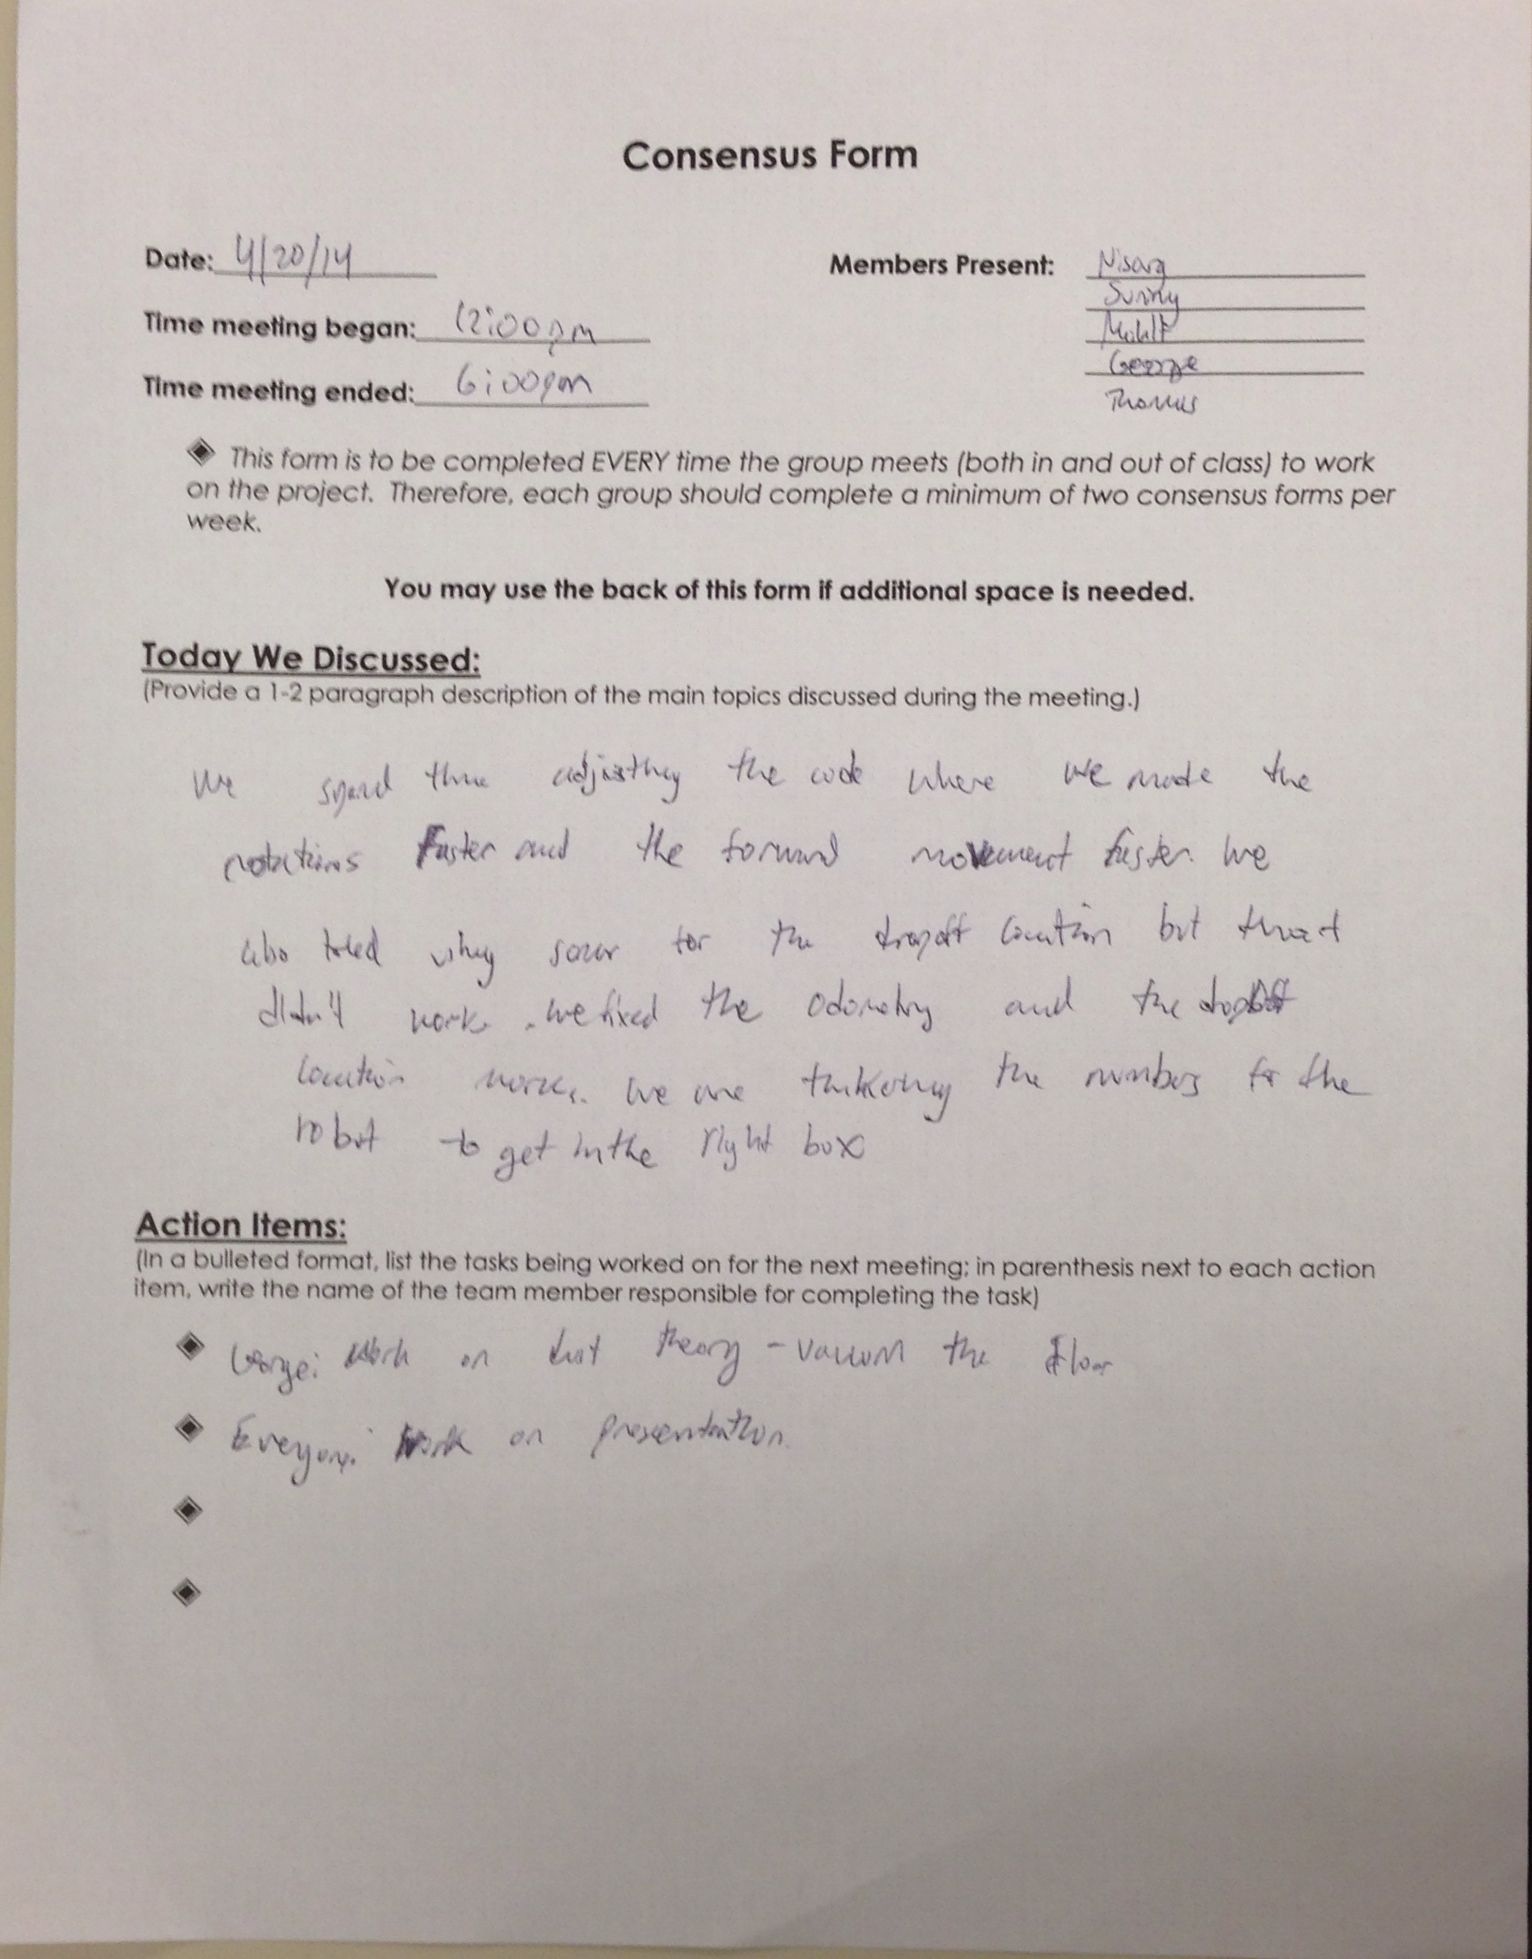 Consensus Form
Date: 4/20/14
Members Present: Nisarg
Sunny
Mohit
George
Thomas
Time meeting began: 12:00pm
Time meeting ended: 6:00pm
This form is to be completed EVERY time the group meets (both in and out of class) to work
on the project. Therefore, each group should complete a minimum of two consensus forms per
week.
You may use the back of this form if additional space is needed.
Today We Discussed:
(Provide a 1-2 paragraph description of the main topics discussed during the meeting.)
We spend time adjusting the code where we made the
rotations faster and the forward movement faster. We
also tried using sonar for the dropoff location but
didn't work. we fixed the odometry and the dropoff
location works. We are the numbers for the
robot to get in the right box
Action Items:
(In a bulleted format, list the tasks being worked on for the next meeting; in parenthesis next to each action
item, write the name of the team member responsible for completing the task)
George: Work on dust theory - vacuum the floor
Everyone: Work on presentation.